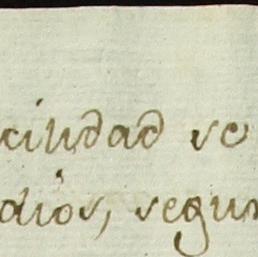 cilidad se
dios, segun